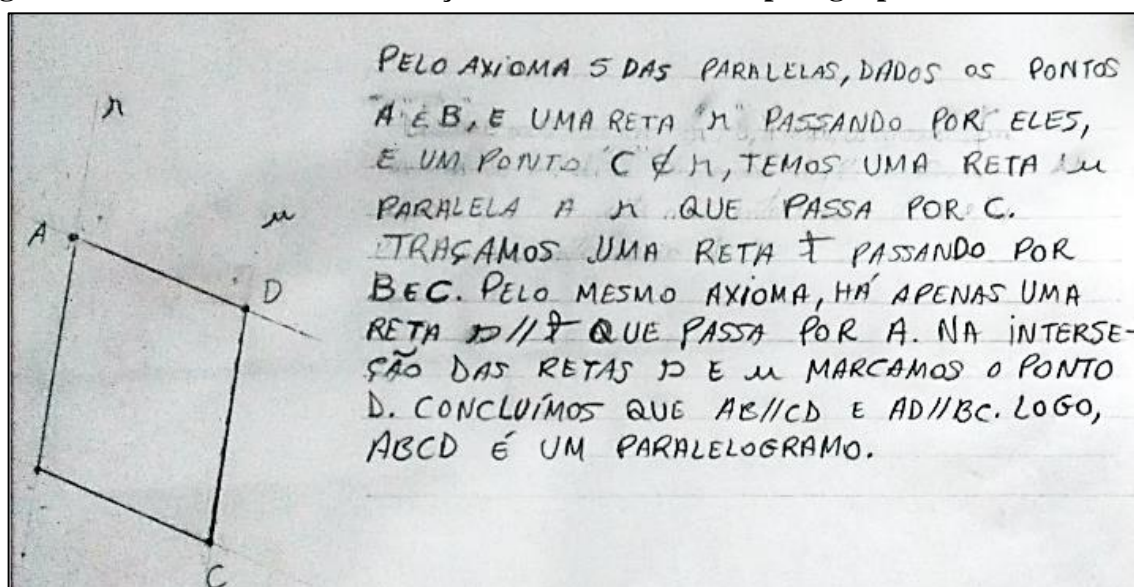 PELO AXIOMA 5 DAS PARALELAS, DADOS OS PONTOS
A E B, E UMA RETA "r" PASSANDO POR ELES,
E UM PONTO C ∉ r, TEMOS UMA RETA u
PARALELA A r QUE PASSA POR C.
TRAÇAMOS UMA RETA t PASSANDO POR
B E C. PELO MESMO AXIOMA, HÁ APENAS UMA
RETA s // t QUE PASSA POR A. NA INTERSE-
ÇÃO DAS RETAS s E u MARCAMOS O PONTO
D. CONCLUÍMOS QUE AB//CD E AD//BC. LOGO,
ABCD É UM PARALELOGRAMO.
r
u
A
D
C